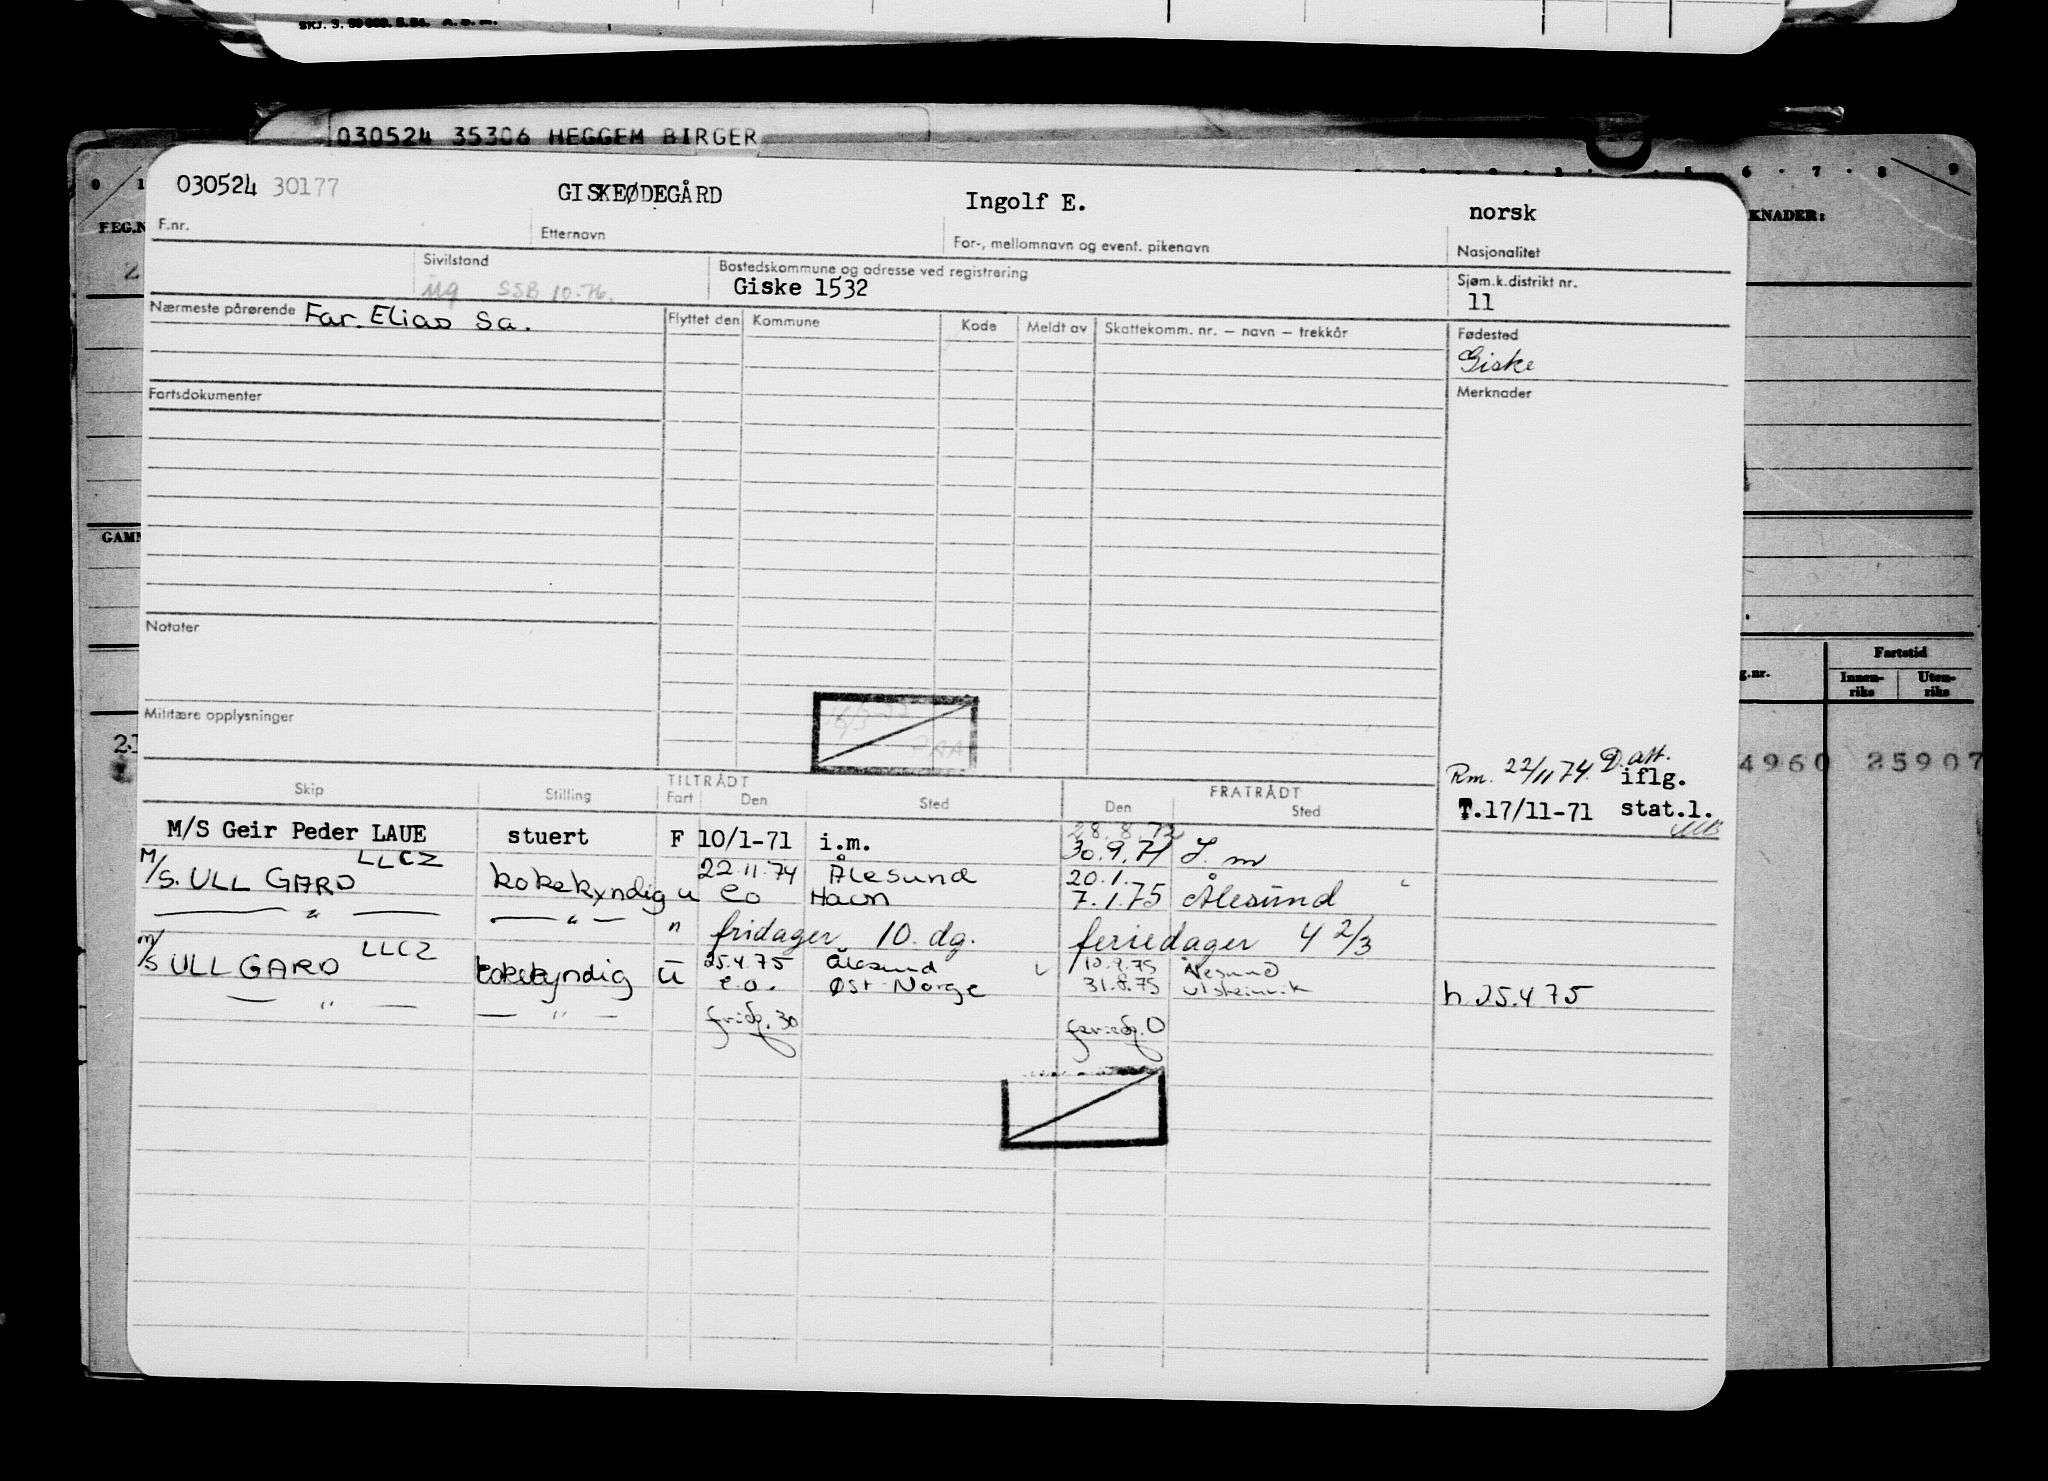 SKJ. 3.
030524 35306 HEGGEM BIRGER
030524 30177 GISKEØDEGÅRD Ingolf E. norsk
F.nr. Etternavn For-, mellomnavn og event. pikenavn Nasjonalitet
Sivilstand Bostedskommune og adresse ved registrering Sjøm.k.distrikt nr.
ug SSB 10-76. Giske 1532 11
Nærmeste pårørende Far. Elias Sa. Flyttet den Kommune Kode Meldt av Skattekomm. nr. – navn – trekkår Fødested
Giske
Fartsdokumenter Merknader
KNADER:
GAM
Notater
Fartstid
g.nr. Innen-riks Uten-riks
Militære opplysninger
4960 25907
Rm. 22/11 74. D. att.
iflg.
T.17/11-71 stat.l.
TILTRÅDT FRATRÅDT
Skip Stilling Fart Den Sted Den Sted
M/S Geir Peder LAUE stuert F 10/1-71 i.m. 28.8.72
30.9.71 I. m
M/S. ULL GARD LLCZ kokekyndig u 22.11.74 Ålesund 20.1.
eo Havn 7.1.75 Ålesund
— " — — " — " fridager 10. dg. feriedager 4 2/3
M/S ULL GARD LLCZ kokekyndig U 25.4.75 Ålesund 10.9.75 Ålesund
e.o. Øst-Norge 31.8.75 Ulsteinvik h. 25.4 75
— " — — " — fridg. 30 feriedg. 0